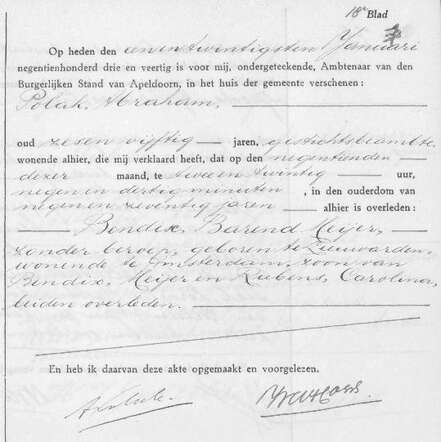 18e Blad
Op heden den eenentwintigsten Januari
negentienhonderd drie en veertig is voor mij, ondergeteekende, Ambtenaar van den
Burgerlijken Stand van Apeldoorn, in het huis der gemeente verschenen:
Polak, Abraham,
oud zesen vijftig jaren, gestichtsbeambte
wonende alhier, die mij verklaard heeft, dat op den negentienden
dezer maand, te tweeen twintig uur,
negen en dertig minuten, in den ouderdom van
negen en zeventig jaren alhier is overleden:
Bendix, Barend Meijer,
zonder beroep, geboren te Leeuwarden,
wonende te Amsterdam, zoon van
Bendix, Meijer en Lubens, Carolina,
beiden overleden.
En heb ik daarvan deze akte opgemaakt en voorgelezen.